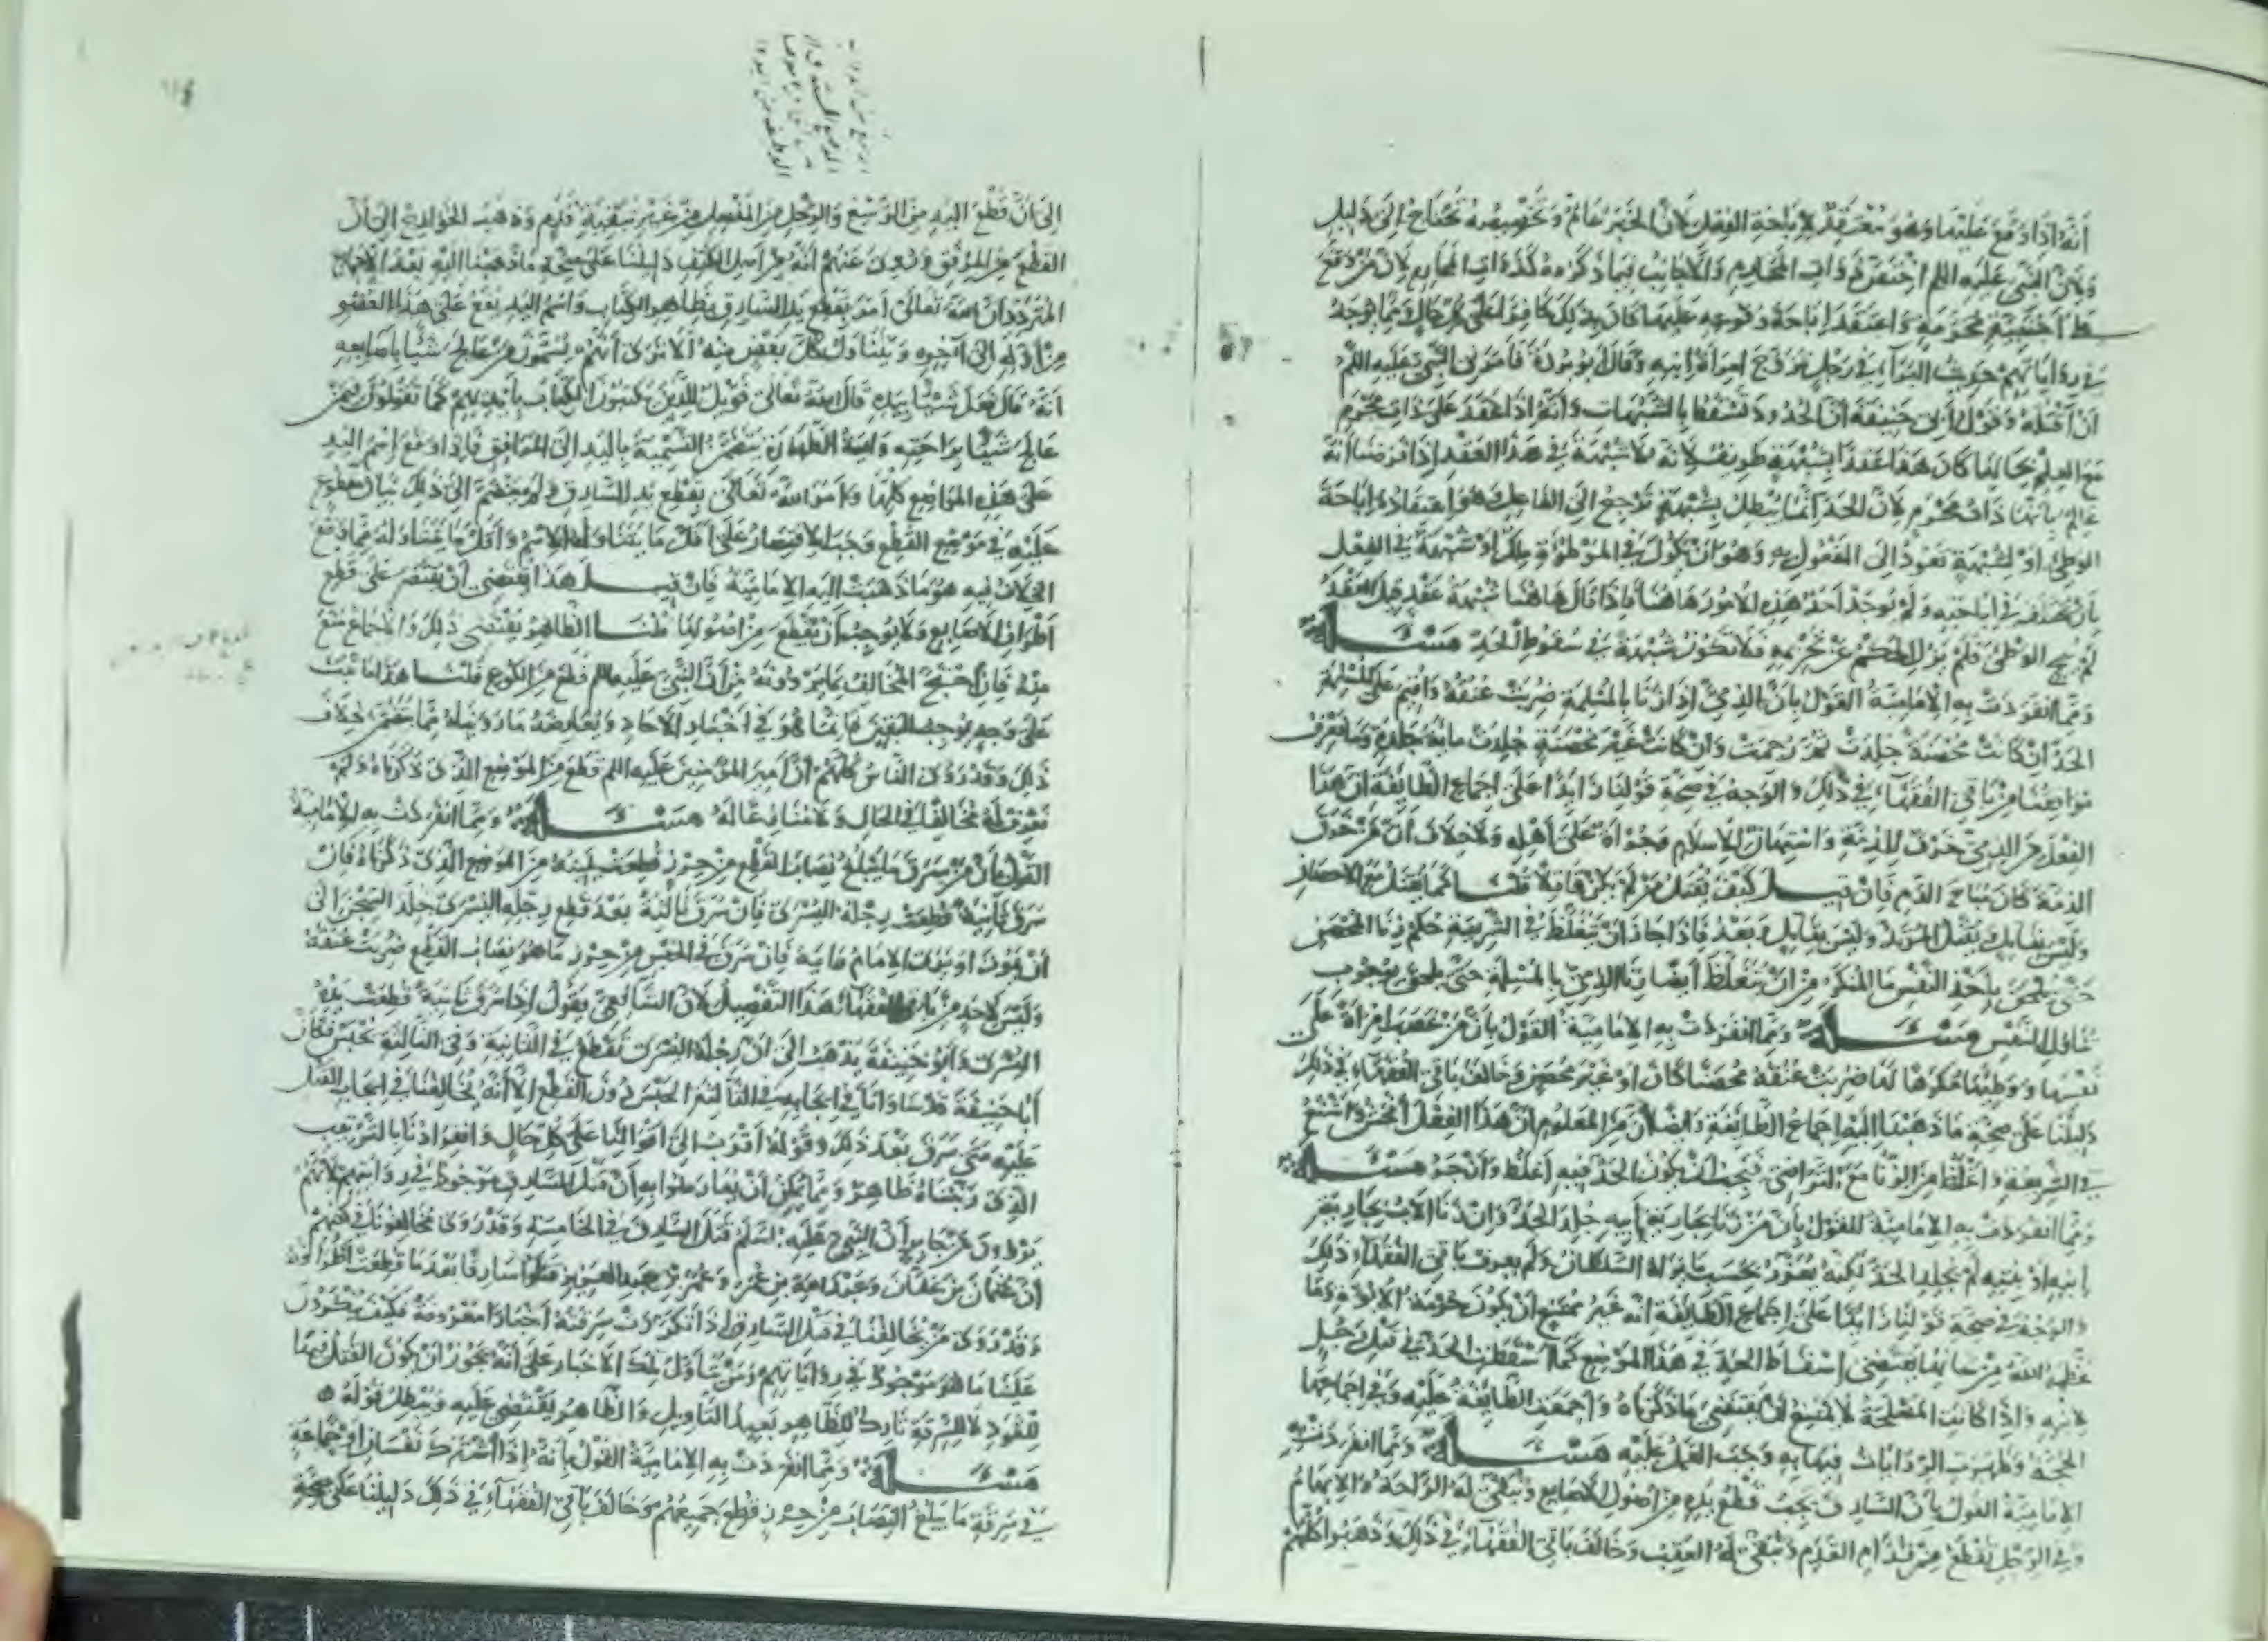 أنه إذا وقع عليها وهو معتقد لإباحة الفعل لأن الخبر عام وتخصيصه يحتاج إلى دليل
ولأن النبي عليه السلم ذوات المحارم والأجانب فيما ذكروه كذوات المحارم لأن من وقع
على أجنبية محرمة واعتقد إباحة وقوعه عليها كان بذلك كافرا على كل حال ومما يوجد
في رواياتهم حديث البراء في رجل تزوج امرأة أبيه وقال أبو بردة فأمرني النبي عليه السلم
أن أقتله وقول أبي حنيفة أن الحدود تسقط بالشبهات وأنه إذا عقد على ذات محرم
مع العلم بحالها كان هذا عقدا بشبهة طريف لأنه لا شبهة في هذا العقد إذا فرضنا أنه
عالم بأنها ذات محرم لأن الحد إنما يبطل بشبهة ترجع إلى الفاعل وهو اعتقاده إباحة
الوطئ أو لشبهة تعود إلى المفعول به وهو أن يكون في الموطوءة ملك أو شبهة في الفعل
بأن يختلف في إباحته ولم يوجد أحد هذه الأمور هاهنا فإذا قال هاهنا شبهة عقد قيل العقد
لم يبح الوطئ فلم يزل الحكم عن تحريمه فلا تكون شبهة في سقوط الحد مسئلة
ومما انفردت به الإمامية القول بأن الذمي إذا زنا بالمسلمة ضربت عنقه وأقيم على المسلمة
الحد إن كانت محصنة جلدت ثم رجمت وإن كانت غير محصنة جلدت مائة جلدة وما نعرف
موافقا من باقي الفقهاء في ذلك والوجه في صحة قولنا زائدا على إجماع الطائفة أن هذا
الفعل من الذمي خرق للذمة واستهان بالإسلام وجرأة على أهله ولا خلاف أن من خرق
الذمة كان مباح الدم فإن قيل كيف يقتل من لم يكن قاتلا قلنا كما يقتل مع الإحصان
وليس بقاتل ويقتل المرتد وليس بقاتل وبعد فإذا جاز أن يتغلظ في الشريعة حكم زنا المحصن
حتى يلحق بأخذ النفس ما المنكر من أن يتغلظ أيضا زنا الذمي بالمسلمة حتى يلحق بوجوب
تناول النفس مسئلة ومما انفردت به الإمامية القول بأن من غصب امرأة على
نفسها ووطئها مكرها لها ضربت عنقه محصنا كان أو غير محصن وخالف باقي الفقهاء في ذلك
دليلنا على صحة ما ذهبنا إليه إجماع الطائفة وأيضا أن من المعلوم أن هذا الفعل أفحش وأشنع
في الشريعة وأغلظ من الزنا مع التراضي فيجب أن يكون الحد فيه أغلظ وأزجر مسئلة
ومما انفردت به الإمامية القول بأن من زنا بجارية أبيه جلد الحد وإن زنا الأب بجارية
ابنه أو بنته لم يجلد الحد لكنه يعزر بحسب ما يراه السلطان ولم يعرف باقي الفقهاء ذلك
والوجه في صحة قولنا زائدا على إجماع الطائفة أنه غير ممتنع أن يكون حرمة الأبوة وما
عظمه الله من يقتضي إسقاط الحد في هذا الموضع كما أسقطت الحد في قتل رجل
لابنه وإذا كانت المصلحة لا يمتنع أن يقتضي ما ذكرناه وأجمعت الطائفة عليه وفي إجماعها
الحجة وظهرت الروايات فيها به وجب العمل عليه مسئلة ومما انفردت به
الإمامية القول بأن السارق يجب قطع يده من أصول الأصابع وتبقى له الراحة والإبهام
وفي الرجل يقطع من صدر القدم وتبقى له العقب وخالف باقي الفقهاء في ذلك وذهبوا كلهم
إلى أن قطع اليد من الرسغ والرجل من المفصل من غير تبقية قدم وذهب الخوارج إلى أن
القطع من المرفق وروي عنهم أنه من أصل الكتف دليلنا على صحة ما ذهبنا إليه بعد الإجماع
المتردد أن الله تعالى أمر بقطع يد السارق بظاهر الكتاب واسم اليد يقع على هذا العضو
من أوله إلى آخره ويتناول كل بعض منه ألا ترى أنهم يسمون من عالج شيئا بأصابعه
أنه قد فعل شيئا بيده قال الله تعالى فويل للذين يكتبون الكتاب بأيديهم كما تقولون فيمن
عالج شيئا براحته وآية الطهارة يتضمن التسمية باليد إلى المرافق فإذا وقع اسم اليد
على هذه المواضع كلها وأمر الله تعالى بقطع يد السارق ولم ينضم إلى ذلك بيان مقطوع
عليه في موضع القطع وجب الاقتصار على أقل ما يتناوله الاسم وأقل ما يتناوله مما وقع
الخلاف فيه هو ما ذهبت إليه الإمامية فإن قيل هذا يقتضي أن يقتصر على قطع
أطراف الأصابع ولا يوجب أن يقطع من أصولها قلنا الظاهر يقتضي ذلك والإجماع منع
منه فإن احتج المخالف بما يروونه من أن النبي عليه السلم قطع من الكوع قلنا هذا ما ثبت
على وجه يوجب اليقين وإنما هو في أخبار الآحاد ويعارضه ما رويناه مما يتضمن خلاف
ذلك وقد روى الناس كلهم أن أمير المؤمنين عليه السلم قطع من الموضع الذي ذكرناه ولم
نعرف له مخالفا في الحال ولا منازعا له مسئلة ومما انفردت به الإمامية
القول بأن من سرق ما يبلغ نصاب القطع من حرز قطعت يمينه من الموضع الذي ذكرناه فإن
سرق ثانية قطعت رجله اليسرى فإن سرق ثالثة بعد قطع رجله اليسرى خلد السجن إلى
أن يموت أو يرى الإمام فيه رأيه فإن سرق في الحبس من حرز ما هو نصاب القطع ضربت عنقه
وليس لأحد من باقي الفقهاء هذا التفصيل لأن الشافعي يقول إذا سرق ثانية قطعت يده
اليسرى وأبو حنيفة يذهب إلى أن رجله اليسرى تقطع في الثانية وفي الثالثة يحبس فكأن
أبا حنيفة قد ساوانا في إيجابه في الثالثة الحبس دون القطع إلا أنه يخالفنا في إيجاب القتل
عليه متى سرق بعد ذلك وقوله أقرب إلى أقوالنا على كل حال وانفرادنا بالترتيب
الذي رتبناه ظاهر ومما يمكن أن يعارضوا به أن قتل السارق موجود في رواياتهم لأنهم
يروون عن جابر أن النبي عليه السلم قتل السارق في الخامسة وقد روى مخالفونا في كتبهم
أن عثمان بن عفان وعبد الله بن عمر وعمر بن عبد العزيز قتلوا سارقا بعد ما قطعت أطرافه
وقد روى من يخالفنا في قتل السارق إذا تكررت سرقته أخبارا معروفة فكيف ينكرون
علينا ما هو موجود في رواياتهم ومن تأول هذه الأخبار على أنه يجوز أن يكون القتل فيها
للقود لا للسرقة تارك للظاهر بعيد التأويل والظاهر يقتضي عليه ويبطل قوله
مسئلة ومما انفردت به الإمامية القول بأنه إذا اشترك نفسان أو جماعة
في سرقة ما يبلغ النصاب من حرز قطع جميعهم وخالف باقي الفقهاء في ذلك دليلنا على صحة